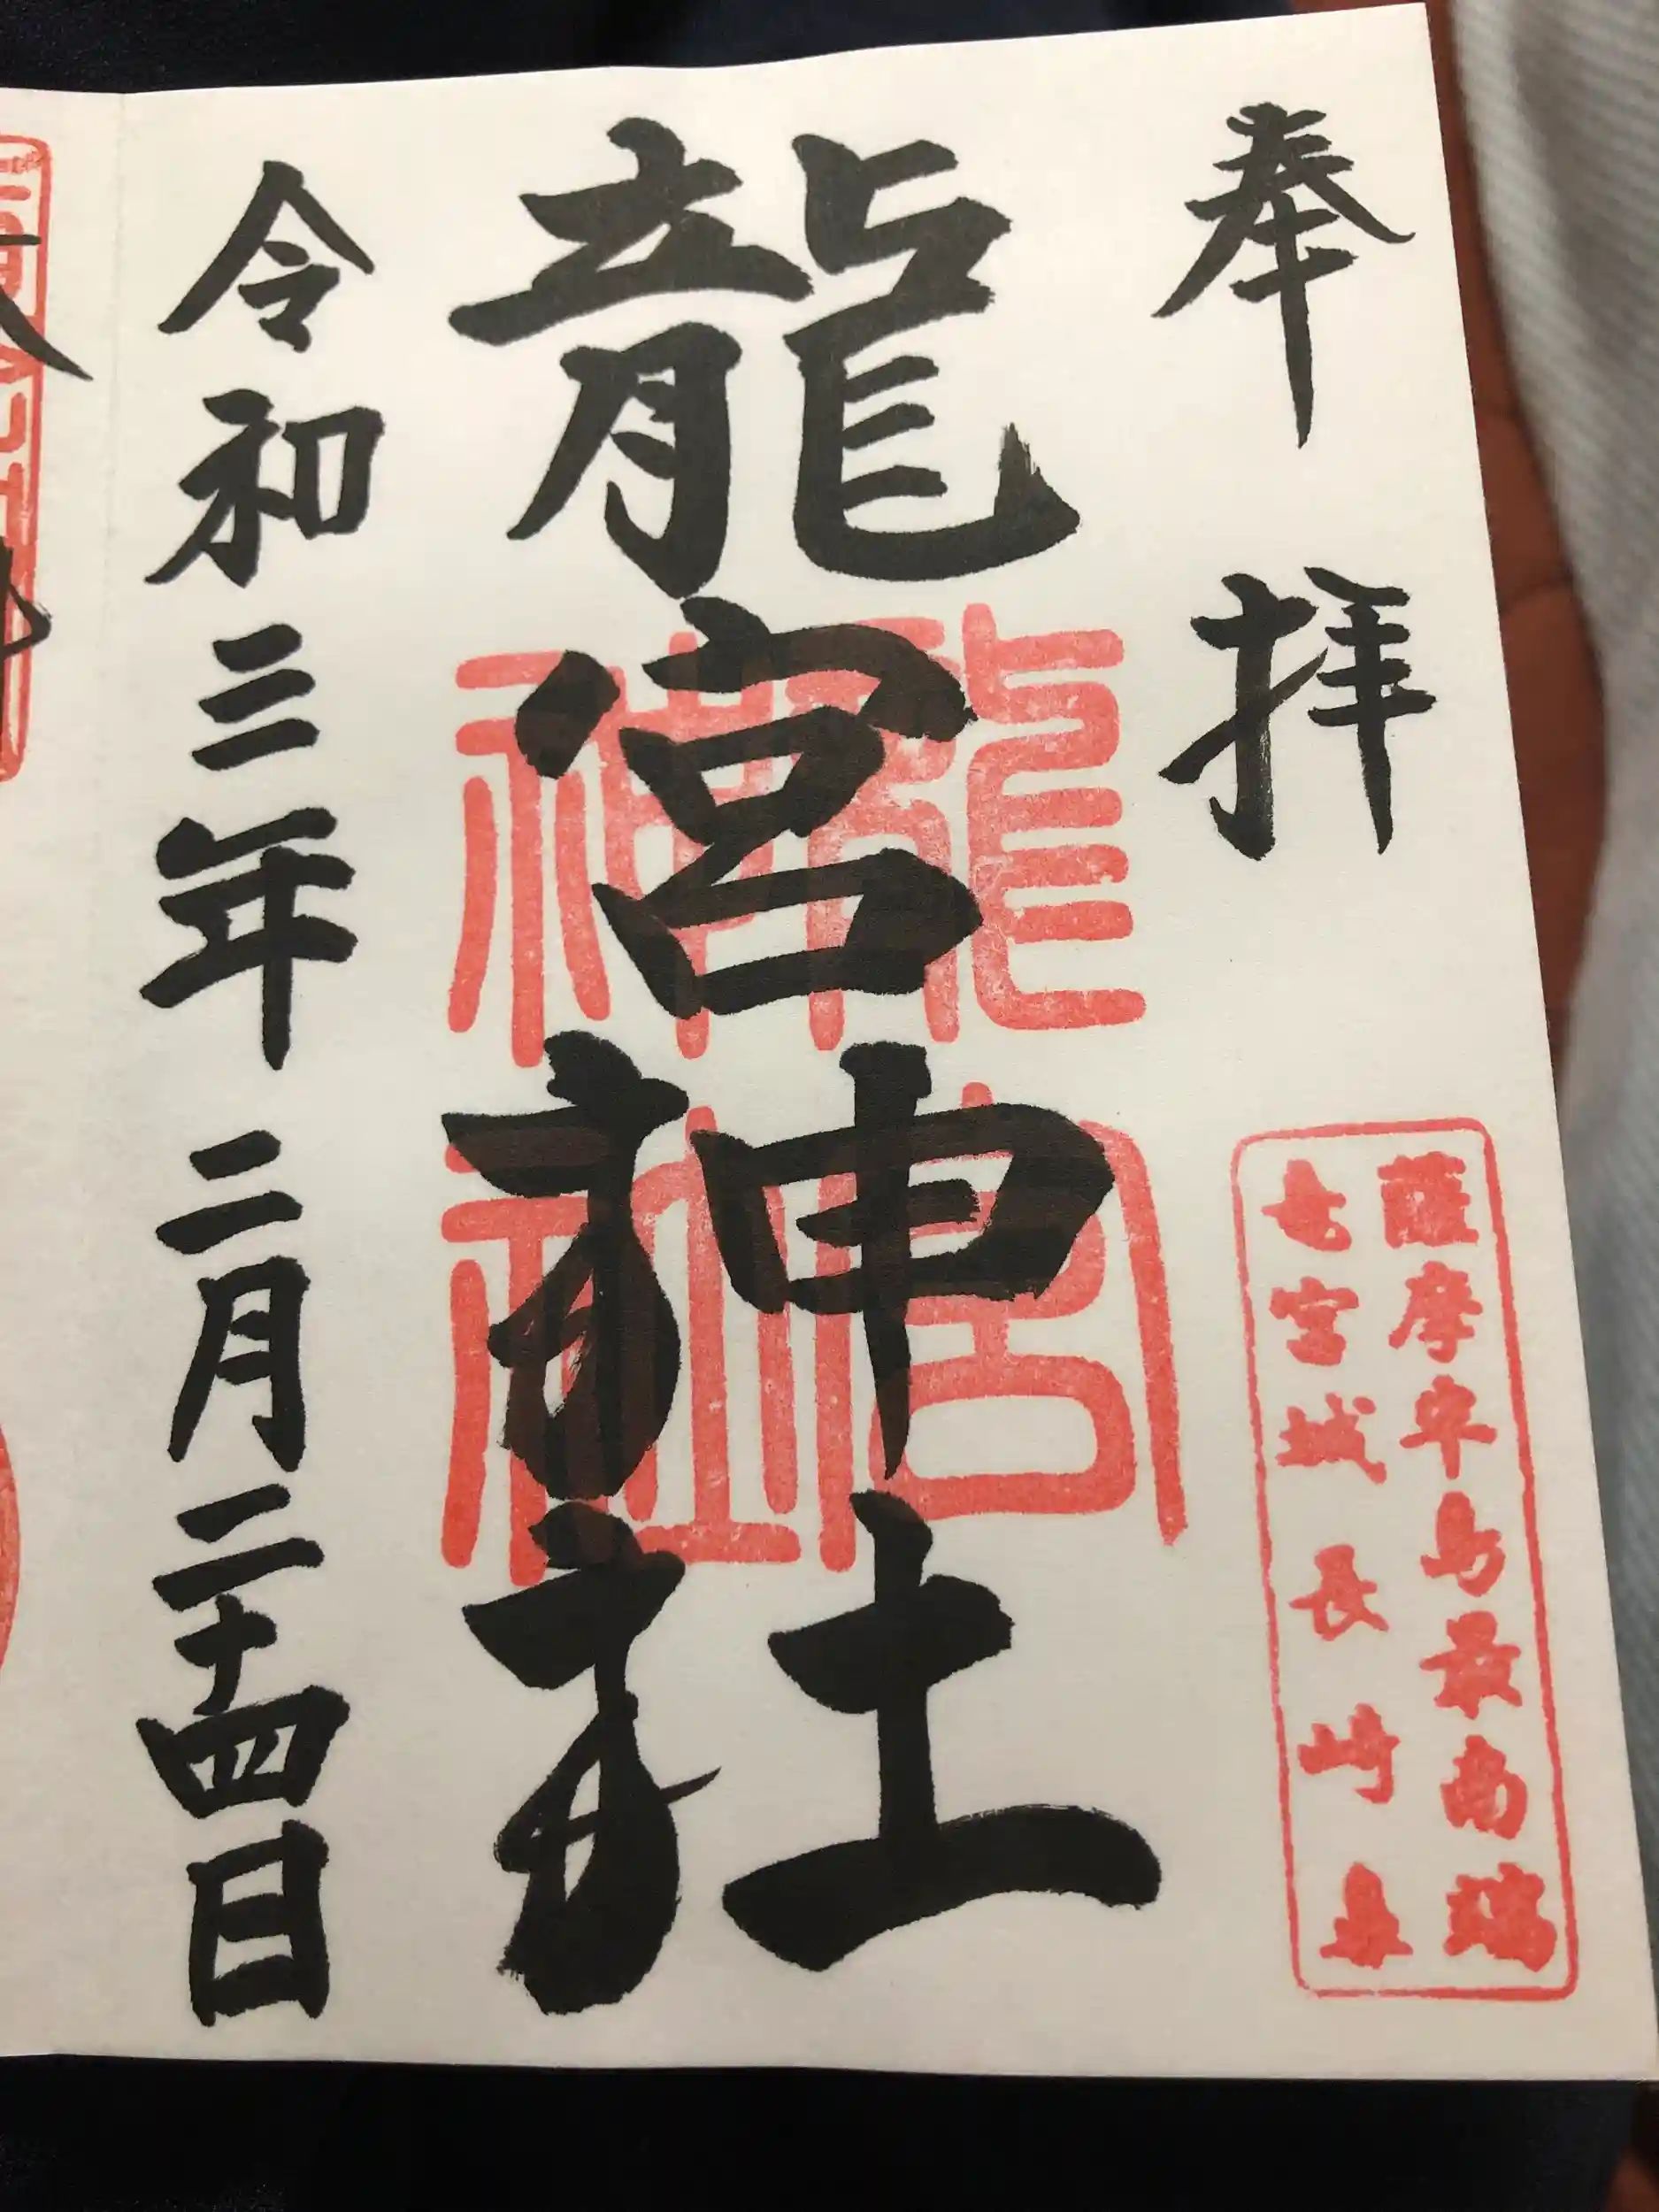 奉拝
薩摩半島最南端
竜宮城長崎鼻
龍宮神社
龍宮
神社
令和三年二月二十四日